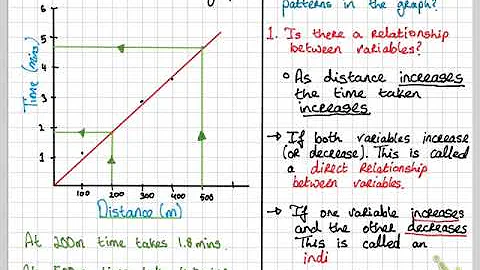 6
5
4
3
2
1
Time (mins)
100
200
300
400
500
Distance (m)
At 200m time takes 1.8 mins.
patterns in the graph?
1. Is there a relationship
between variables?
As distance increases
the time taken
increases
→ If both variables increase
(or decrease). This is called
a direct relationship
between variables.
→ If one variable increases
and the other decreases
This is called an
indi